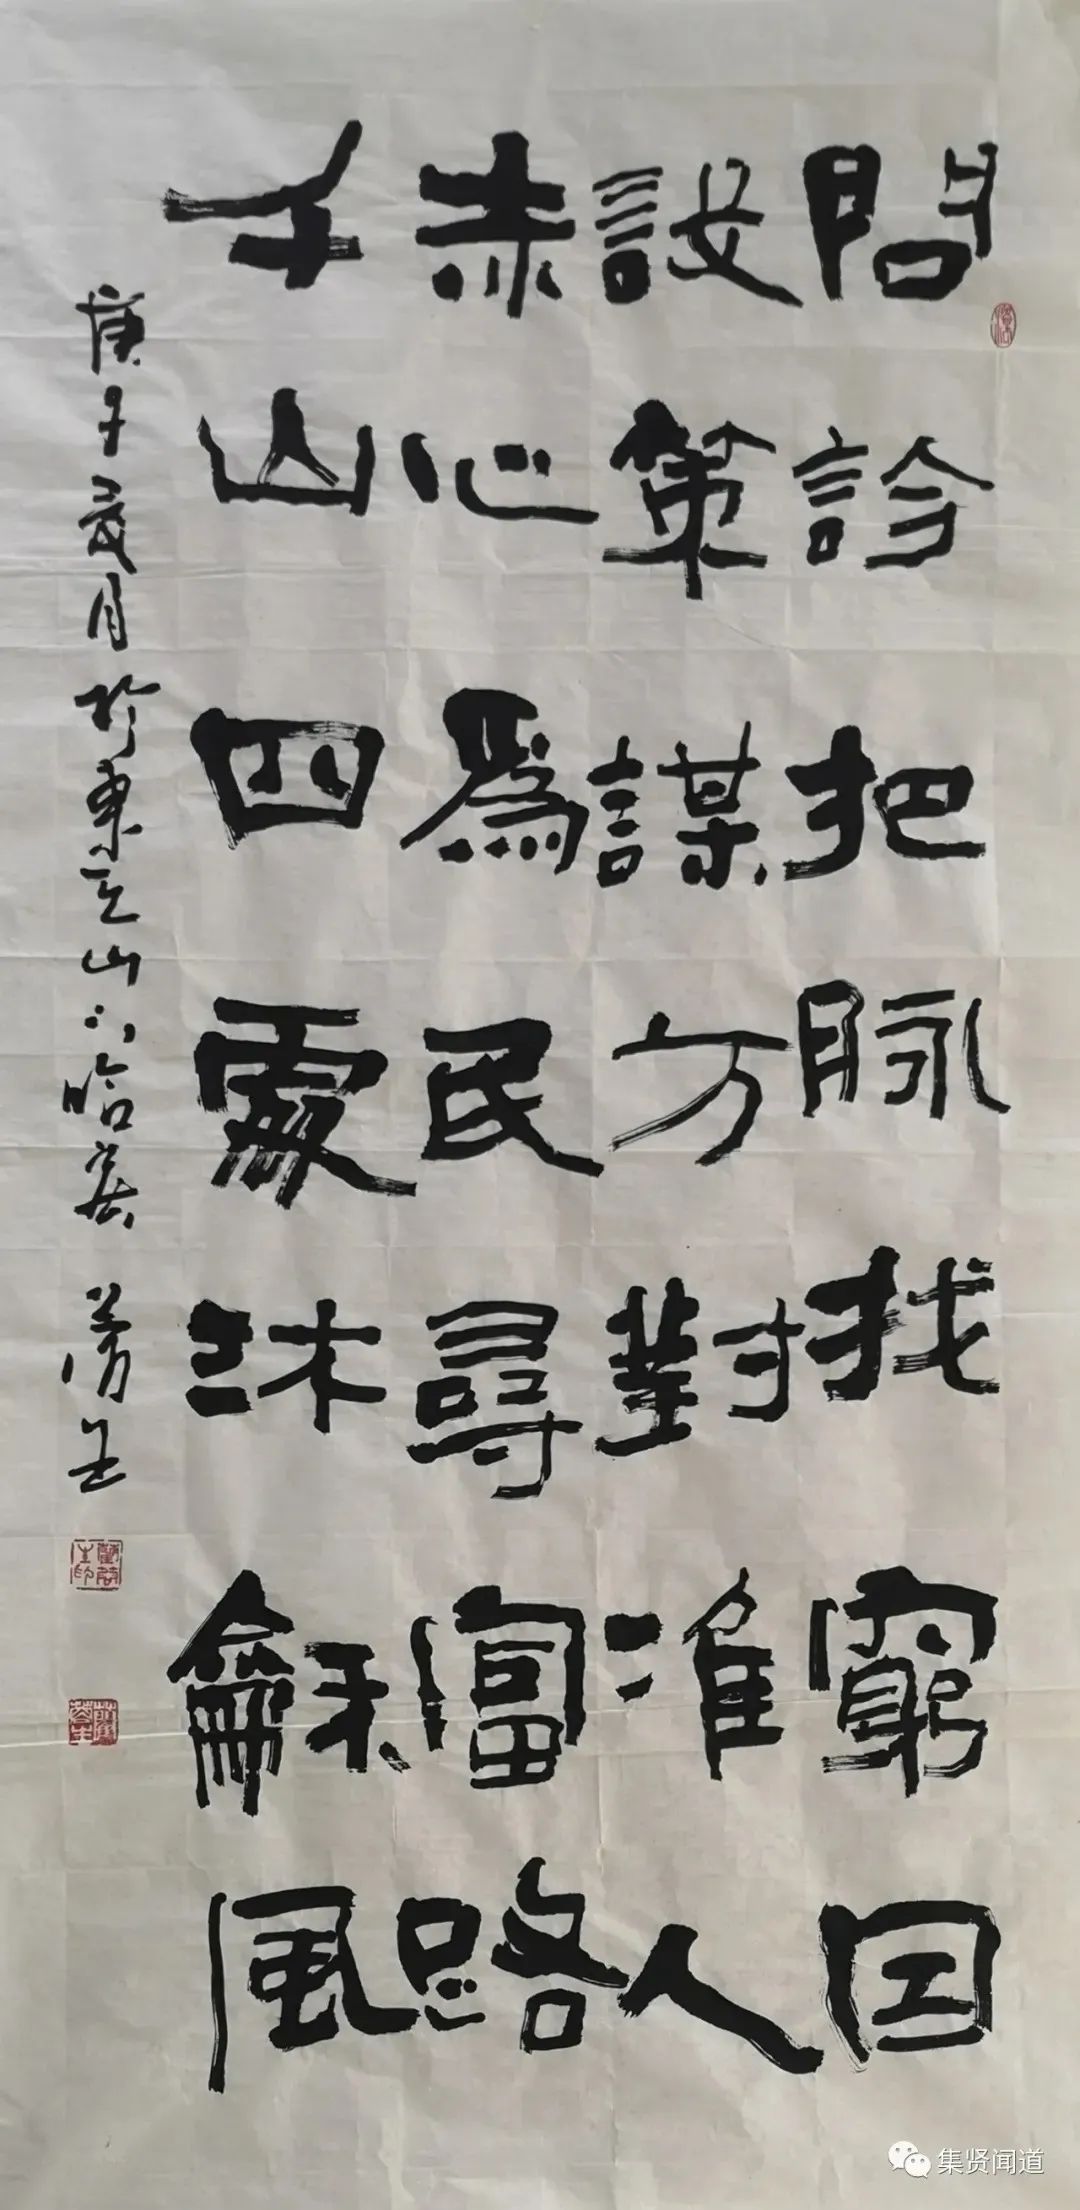 問診把脉找窮因
設策謀方對准人
赤心為民尋富路
千山四處沐龢風
庚子歲月於東天山下哈密
集贤闻道